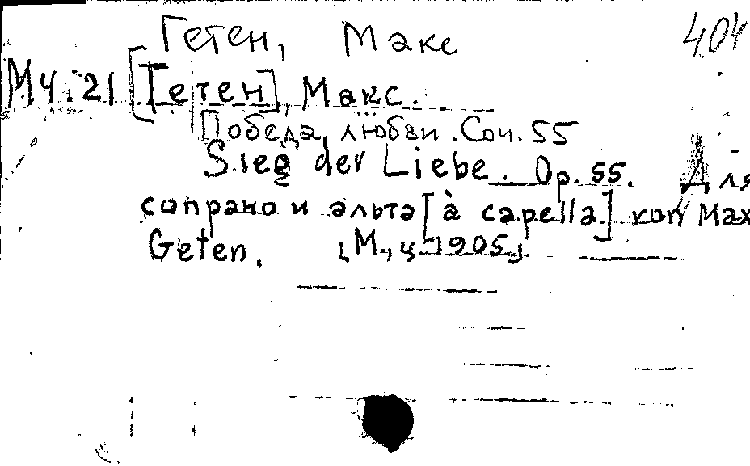 Гетен, Макс 404
М4.21 [Гетен], Макс.
Победа любви. Соч. 55
Sieg der Liebe. Op. 55. Для
сопрано и альта [à capella] von Max
Geten. [М., ц. 1905]